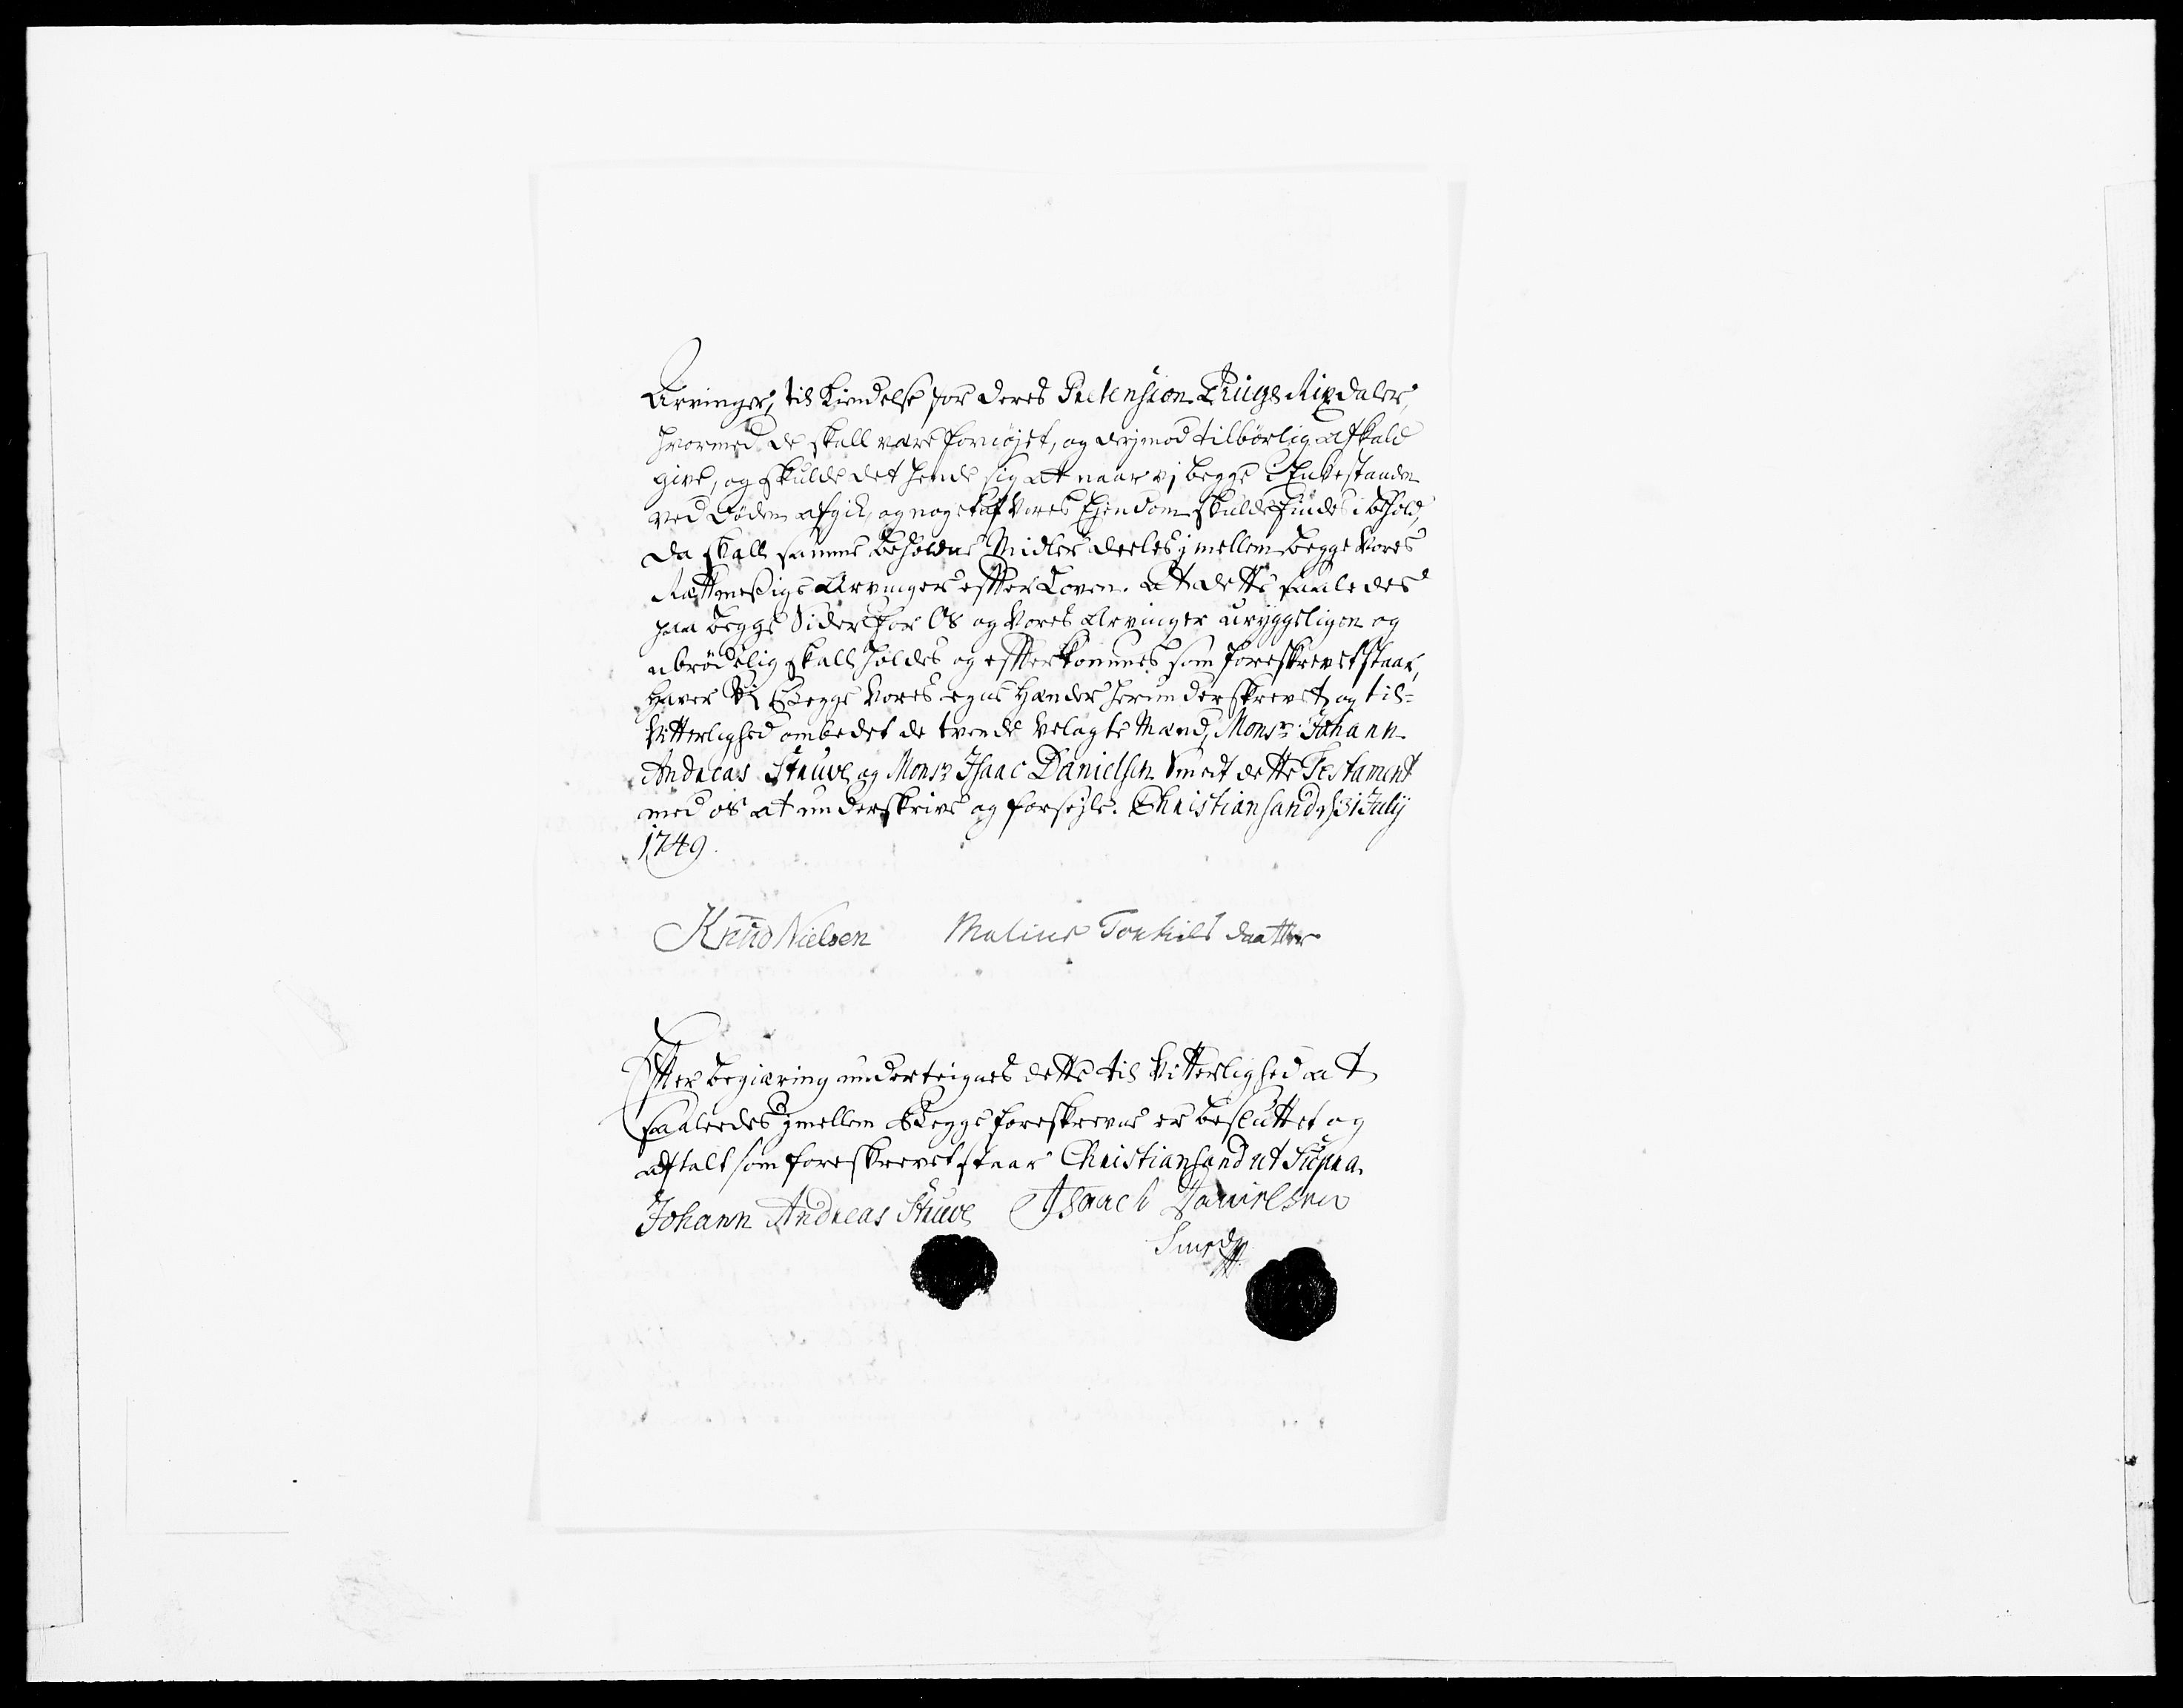 Arvinger, til Kiendelse for deres Pretension Tiuge Rixdaler,
hvormed de skall være fornøjet, og derjmod tilbørlig afkald
give, og skulde det hende sig at naar vj begge i Enkestanden
ved Døden afgik, og noget af Vores Ejendom skulde findes i behold,
da skall samme beholdne Midler deeles jmellem begge Vores
Rættmeßige Arvinger effter Loven. At dette saaledes
paa begge Sider for Os og Vores Arvinger uryggeligen og
ubrødelig skall holdes og effterkommes som foreskrevet staar,
haver Vj Begge Vores egne Hænder herunderskrevet, og til-
Vitterlighed ombedet de tvende Velagte Mænd, Monsr. Johann
Andreas Struve og Monsr Isaac Danielsen Smedt dette Testament
med os at underskrive og forsejle. Christiansand d 31 Julij
1749.
Knud Nielsen Maline Torkilsdaatter
Effter begiæring underteignes dette til Vitterlighed at
saaledes jmellem Begge foreskrevne er besluttet og
aftalt som foreskrevet staar Christiansand ut Supra.
Johann Andreas Struve Isaach Danielsen
Smed